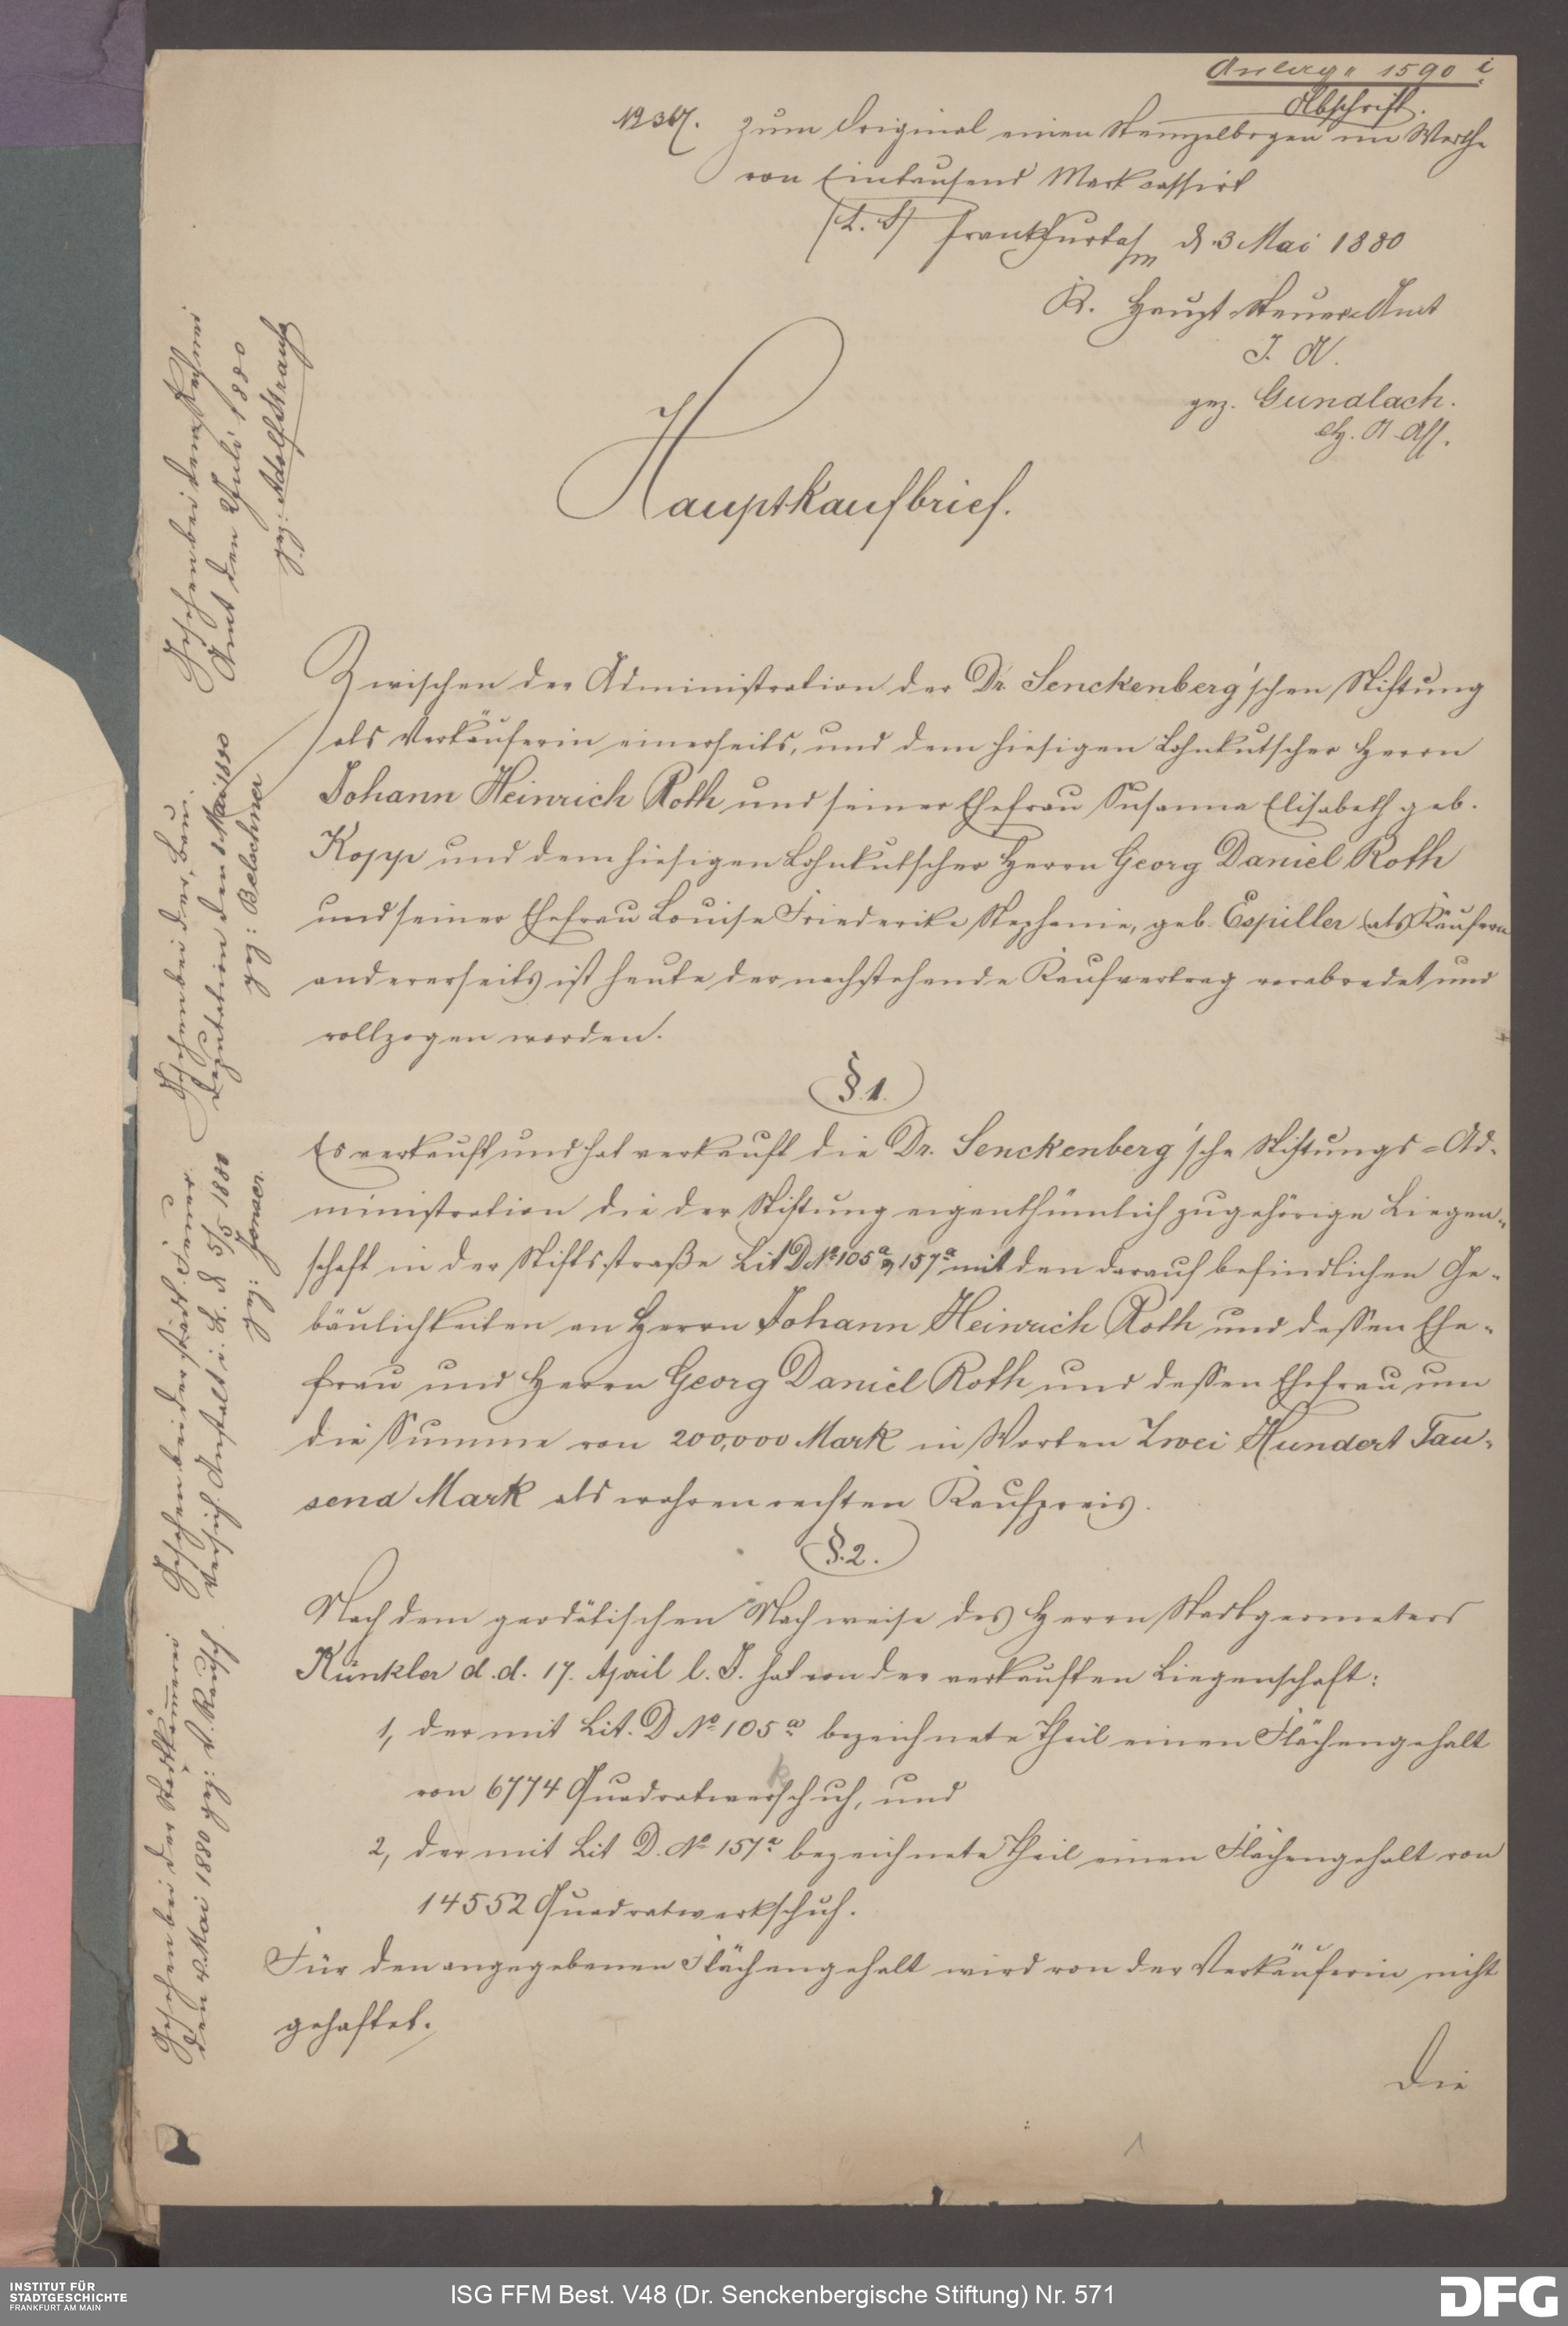 Anlage 1590 i
Abschrift.
Zum Original einen Stempelbogen im Werthe
von Eintausend Mark cassirt
(L. S) Frankfurt a/m d. 3 Mai 1880
K. Haupt Steuer-Amt
J. V.
gez. Gundlach.
Hauptkaufbrief.
Zwischen der Administration der Dr. Senckenberg'schen Stiftung
als Verkäuferin einerseits, und dem hiesigen Lohnkutscher Herrn
Johann Heinrich Roth und seiner Ehefrau Susanna Elisabeth geb.
Kopp und dem hiesigen Lohnkutscher Herrn Georg Daniel Roth
und seiner Ehefrau Louise Friederike Stephanie, geb. Espiller als Käufern
andererseits ist heute der nachstehende Kaufvertrag verabredet und
vollzogen worden.
§. 1.
Es verkauft und hat verkauft die Dr. Senckenberg'sche Stiftungs=Ad-
ministration die der Stiftung eigenthümlich zugehörige Liegen-
schaft in der Stiftsstraße Lit D No 105a & 157a mit den darauf befindlichen Ge-
bäulichkeiten an Herrn Johann Heinrich Roth und dessen Ehe-
frau und Herrn Georg Daniel Roth und dessen Ehefrau um
die Summe von 200,000 Mark in Worten Zwei Hundert Tau-
send Mark als wahren rechten Kaufpreis.
§. 2.
Nach dem geodätischen Nachweise des Herrn Stadtgeometers
Künkler d. d. 17. April l. J. hat von der verkauften Liegenschaft:
1, der mit Lit. D No 105a bezeichnete Theil einen Flächengehalt
von 6774 Quadratwerkschuh, und
2, der mit Lit D. No 157a bezeichnete Theil einen Flächengehalt von
14552 Quadratwerkschuh.
Für den angegebenen Flächengehalt wird von der Verkäuferin nicht
gehaftet.
Die
1
Gesehen bei dem
Amt den Juli 1880
gez: Adolf Strauß
Gesehen bei der Bau
Deputation den 1 Mai 1880
gez: Belschner
Gesehen bei der städt. Feuer
Versich. Anstalt i. L. d 5/5 1880
gez:
Gesehen bei der Stadtkämmerei
den 4 Mai 1880 gez: V. Rausch
INSTITUT FÜR
STADTGESCHICHTE
FRANKFURT AM MAIN
ISG FFM Best. V48 (Dr. Senckenbergische Stiftung) Nr. 571
DFG